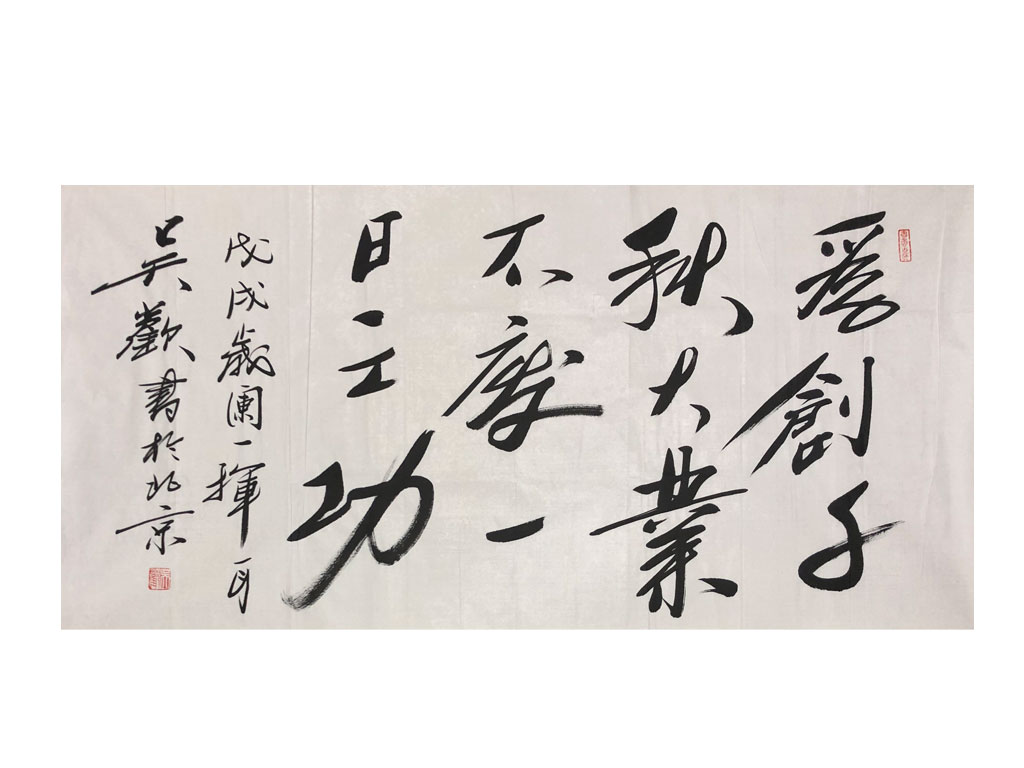 爲創千
秋大業
不廢一
日之功
戊戌歲瀾一揮耳
吳歡書於北京